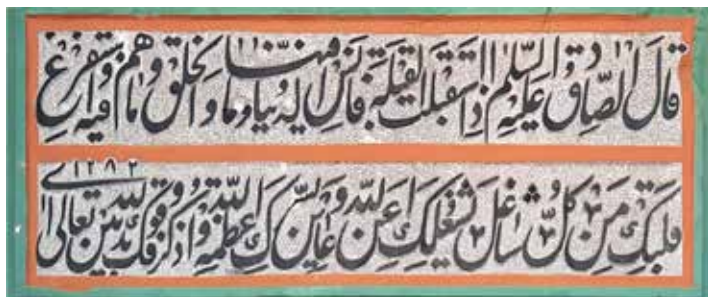 قال الصادق علیه السلم اذا استقبلت القبلة فانس الدنیا وما فیها والخلق وما هم فیه واستفرغ
قلبك من كل شاغل یشغلك عن الله وعاین بسرك عظمة الله واذكر وقوفك بین یدی الله تعالی ۱۲۸۲